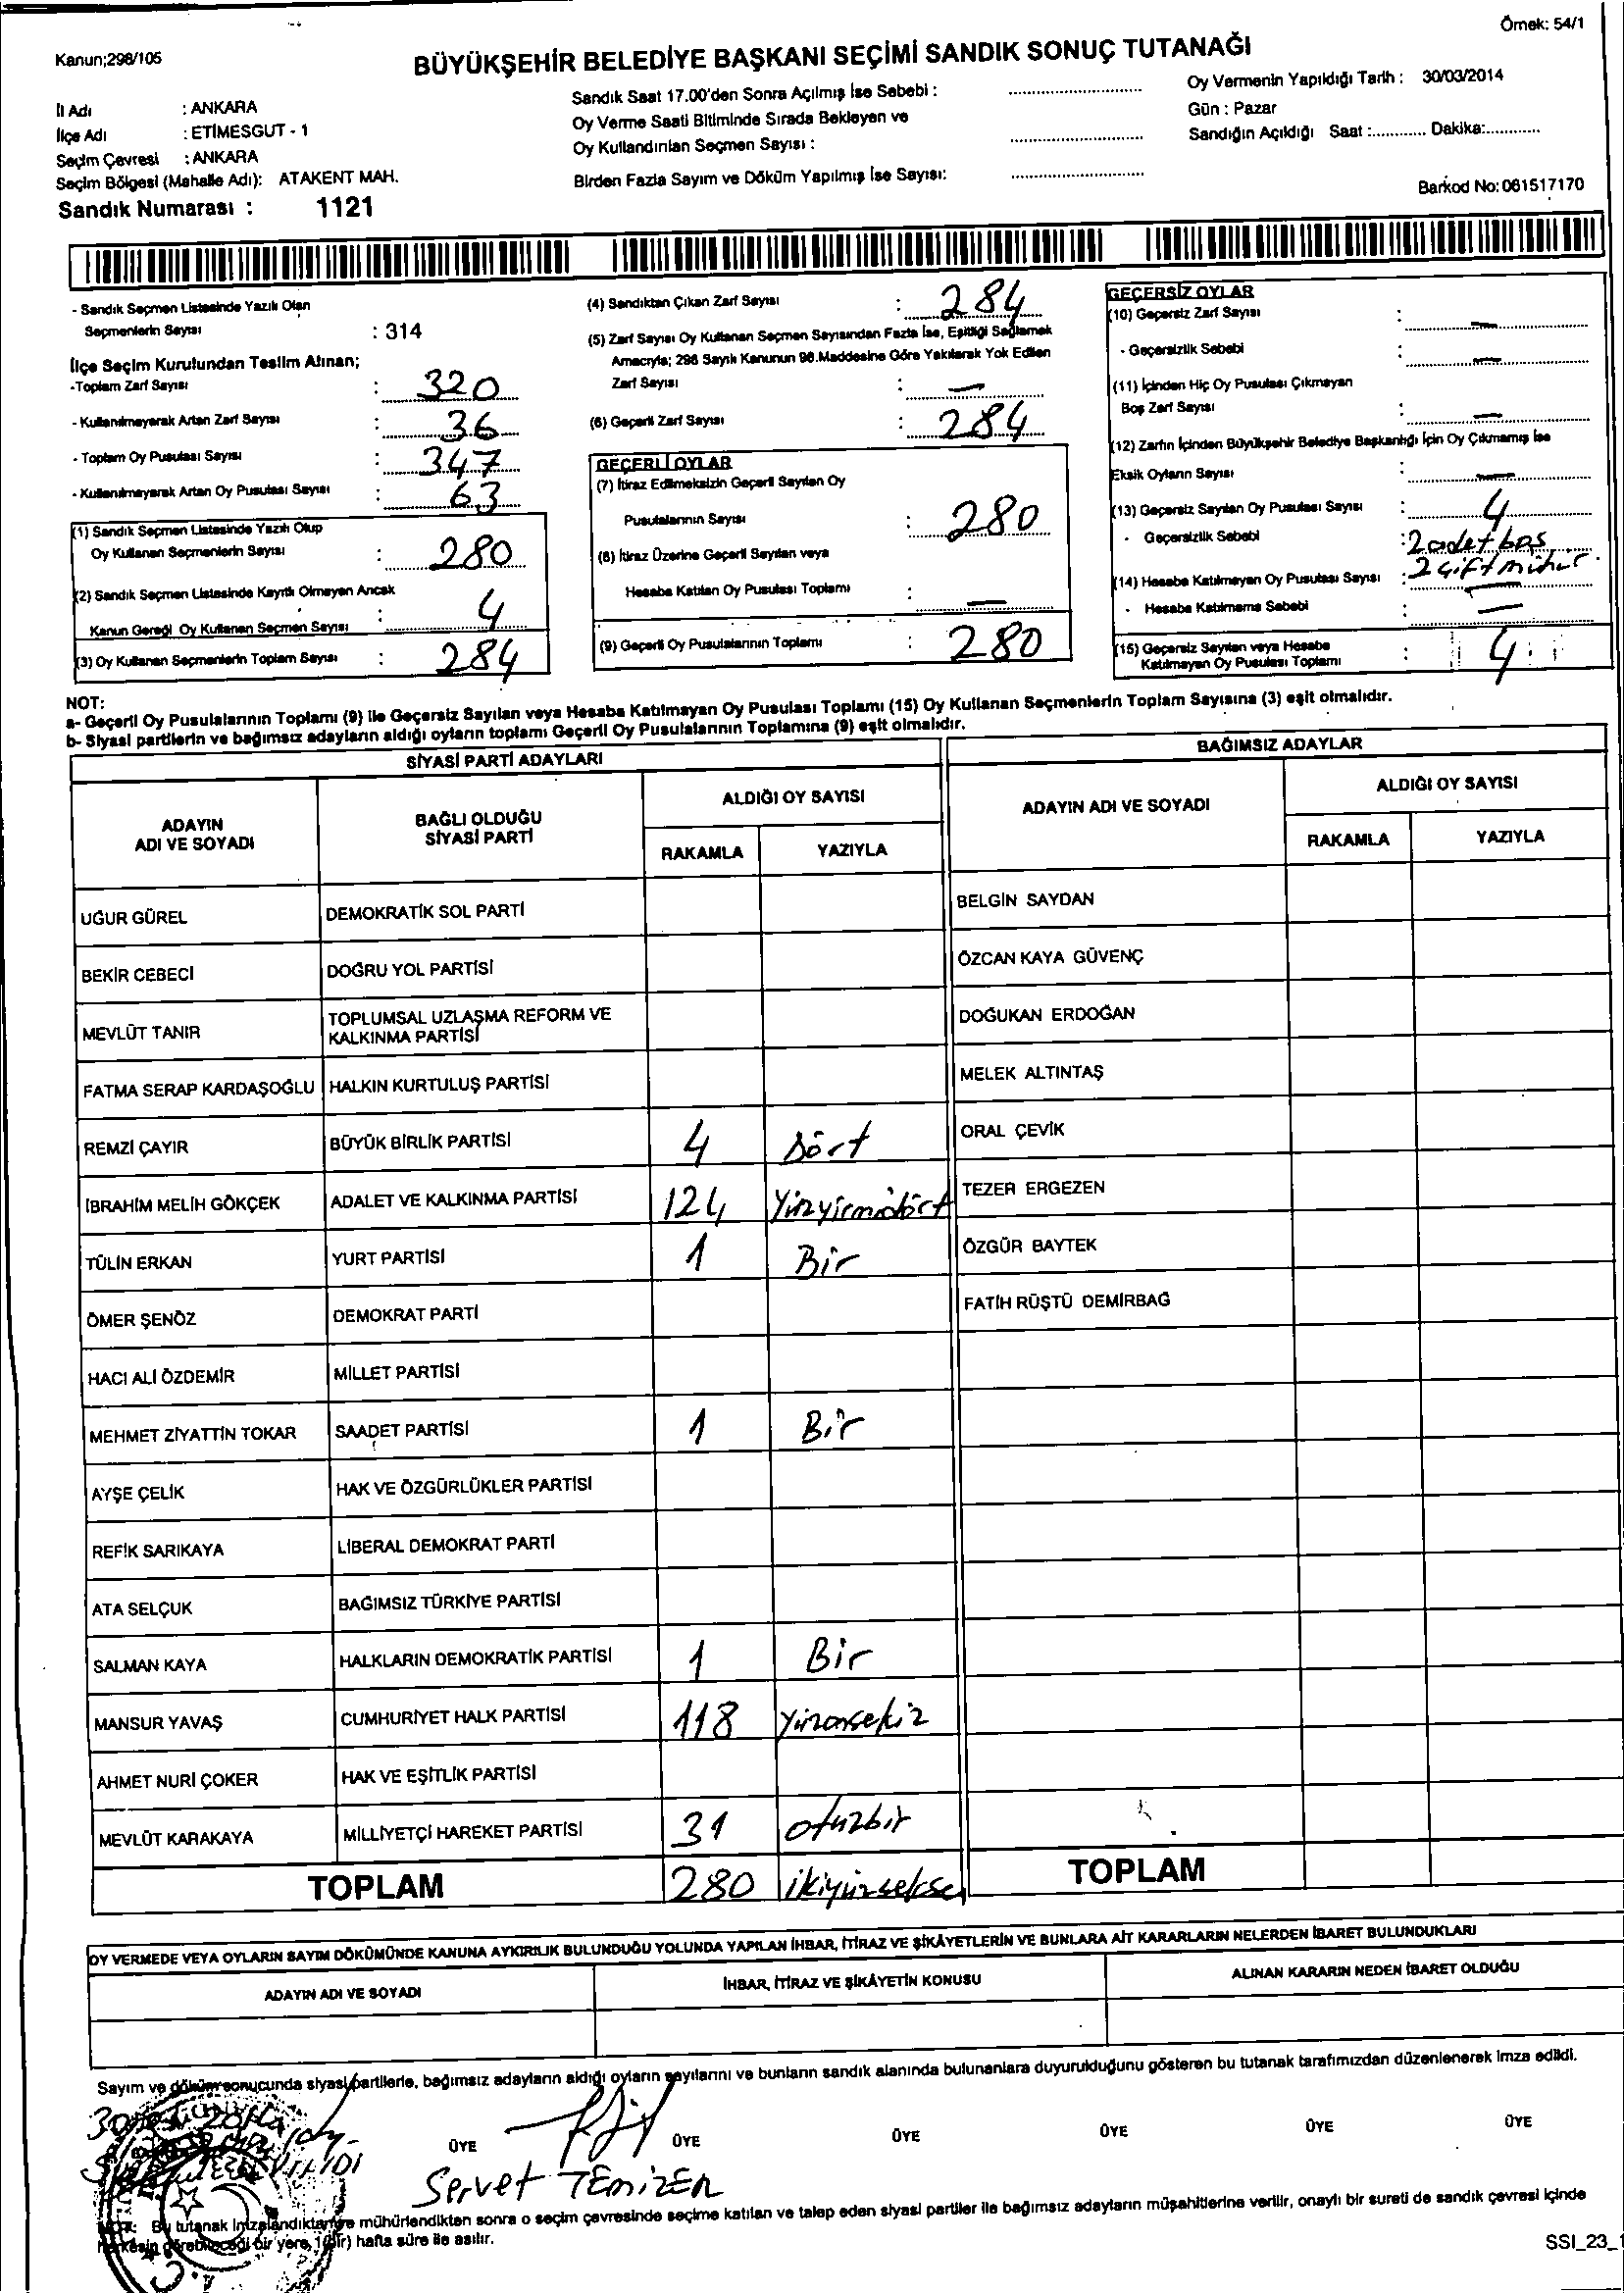 Örnek: 54/1
Kanun;298/105
BÜYÜKŞEHİR BELEDİYE BAŞKANI SEÇİMİ SANDIK SONUÇ TUTANAĞI
İl Adı : ANKARA
İlçe Adı : ETİMESGUT - 1
Seçim Çevresi : ANKARA
Seçim Bölgesi (Mahalle Adı): ATAKENT MAH.
Sandık Numarası : 1121
Sandık Saat 17.00'den Sonra Açılmış İse Sebebi :
Oy Verme Saati Bitiminde Sırada Bekleyen ve
Oy Kullandırılan Seçmen Sayısı :
Birden Fazla Sayım ve Döküm Yapılmış İse Sayısı:
Oy Vermenin Yapıldığı Tarih : 30/03/2014
Gün : Pazar
Sandığın Açıldığı Saat :............ Dakika:............
Barkod No: 061517170
- Sandık Seçmen Listesinde Yazılı Olan
Seçmenlerin Sayısı : 314
İlçe Seçim Kurulundan Teslim Alınan;
-Toplam Zarf Sayısı : 320
- Kullanılmayarak Artan Zarf Sayısı : 36
- Toplam Oy Pusulası Sayısı : 347
- Kullanılmayarak Artan Oy Pusulası Sayısı : 63
(1) Sandık Seçmen Listesinde Yazılı Olup
Oy Kullanan Seçmenlerin Sayısı : 280
(2) Sandık Seçmen Listesinde Kayıtlı Olmayan Ancak
Kanun Gereği Oy Kullanan Seçmen Sayısı : 4
(3) Oy Kullanan Seçmenlerin Toplam Sayısı : 284
(4) Sandıktan Çıkan Zarf Sayısı : 284
(5) Zarf Sayısı Oy Kullanan Seçmen Sayısından Fazla İse, Eşitliği Sağlamak
Amacıyla; 298 Sayılı Kanunun 98.Maddesine Göre Yakılarak Yok Edilen
Zarf Sayısı : —
(6) Geçerli Zarf Sayısı : 284
GEÇERLİ OYLAR
(7) İtiraz Edilmeksizin Geçerli Sayılan Oy
Pusulalarının Sayısı : 280
(8) İtiraz Üzerine Geçerli Sayılan veya
Hesaba Katılan Oy Pusulası Toplamı : —
(9) Geçerli Oy Pusulalarının Toplamı : 280
GEÇERSİZ OYLAR
(10) Geçersiz Zarf Sayısı : —
- Geçersizlik Sebebi : —
(11) İçinden Hiç Oy Pusulası Çıkmayan
Boş Zarf Sayısı : —
(12) Zarfın İçinden Büyükşehir Belediye Başkanlığı İçin Oy Çıkmamış İse
Eksik Oyların Sayısı : —
(13) Geçersiz Sayılan Oy Pusulası Sayısı : 4
- Geçersizlik Sebebi : 2 adet boş
2 çift mühür
(14) Hesaba Katılmayan Oy Pusulası Sayısı : —
- Hesaba Katılmama Sebebi : —
(15) Geçersiz Sayılan veya Hesaba
Katılmayan Oy Pusulası Toplamı : 4
NOT:
a- Geçerli Oy Pusulalarının Toplamı (9) ile Geçersiz Sayılan veya Hesaba Katılmayan Oy Pusulası Toplamı (15) Oy Kullanan Seçmenlerin Toplam Sayısına (3) eşit olmalıdır.
b- Siyasi partilerin ve bağımsız adayların aldığı oyların toplamı Geçerli Oy Pusulalarının Toplamına (9) eşit olmalıdır.
SİYASİ PARTİ ADAYLARI
ADAYIN ADI VE SOYADI
BAĞLI OLDUĞU SİYASİ PARTİ
ALDIĞI OY SAYISI
RAKAMLA YAZIYLA
UĞUR GÜREL DEMOKRATİK SOL PARTİ
BEKİR CEBECİ DOĞRU YOL PARTİSİ
MEVLÜT TANIR TOPLUMSAL UZLAŞMA REFORM VE KALKINMA PARTİSİ
FATMA SERAP KARDAŞOĞLU HALKIN KURTULUŞ PARTİSİ
REMZİ ÇAYIR BÜYÜK BİRLİK PARTİSİ 4 Dört
İBRAHİM MELİH GÖKÇEK ADALET VE KALKINMA PARTİSİ 124 Yüzyirmidört
TÜLİN ERKAN YURT PARTİSİ 1 Bir
ÖMER ŞENÖZ DEMOKRAT PARTİ
HACI ALİ ÖZDEMİR MİLLET PARTİSİ
MEHMET ZİYATTİN TOKAR SAADET PARTİSİ 1 Bir
AYŞE ÇELİK HAK VE ÖZGÜRLÜKLER PARTİSİ
REFİK SARIKAYA LİBERAL DEMOKRAT PARTİ
ATA SELÇUK BAĞIMSIZ TÜRKİYE PARTİSİ
SALMAN KAYA HALKLARIN DEMOKRATİK PARTİSİ 1 Bir
MANSUR YAVAŞ CUMHURİYET HALK PARTİSİ 118 Yüzonsekiz
AHMET NURİ ÇOKER HAK VE EŞİTLİK PARTİSİ
MEVLÜT KARAKAYA MİLLİYETÇİ HAREKET PARTİSİ 31 otuzbir
TOPLAM 280 ikiyüzseksen
BAĞIMSIZ ADAYLAR
ADAYIN ADI VE SOYADI
ALDIĞI OY SAYISI
RAKAMLA YAZIYLA
BELGİN SAYDAN
ÖZCAN KAYA GÜVENÇ
DOĞUKAN ERDOĞAN
MELEK ALTINTAŞ
ORAL ÇEVİK
TEZER ERGEZEN
ÖZGÜR BAYTEK
FATİH RÜŞTÜ DEMİRBAĞ
TOPLAM
OY VERMEDE VEYA OYLARIN SAYIM DÖKÜMÜNDE KANUNA AYKIRILIK BULUNDUĞU YOLUNDA YAPILAN İHBAR, İTİRAZ VE ŞİKÂYETLERİN VE BUNLARA AİT KARARLARIN NELERDEN İBARET BULUNDUKLARI
ADAYIN ADI VE SOYADI
İHBAR, İTİRAZ VE ŞİKÂYETİN KONUSU
ALINAN KARARIN NEDEN İBARET OLDUĞU
Sayım ve döküm sonucunda siyasi partilerle, bağımsız adayların aldığı oyların sayılarını ve bunların sandık alanında bulunanlara duyurulduğunu gösteren bu tutanak tarafımızdan düzenlenerek imza edildi.
ÜYE ÜYE ÜYE ÜYE ÜYE ÜYE
Servet TEMİZER
NOT: Bu tutanak imzalandıktan ve mühürlendikten sonra o seçim çevresinde seçime katılan ve talep eden siyasi partiler ile bağımsız adayların müşahitlerine verilir, onaylı bir sureti de sandık çevresi içinde
herkesin görebileceği bir yere, 1(Bir) hafta süre ile asılır.
SSI_23_1